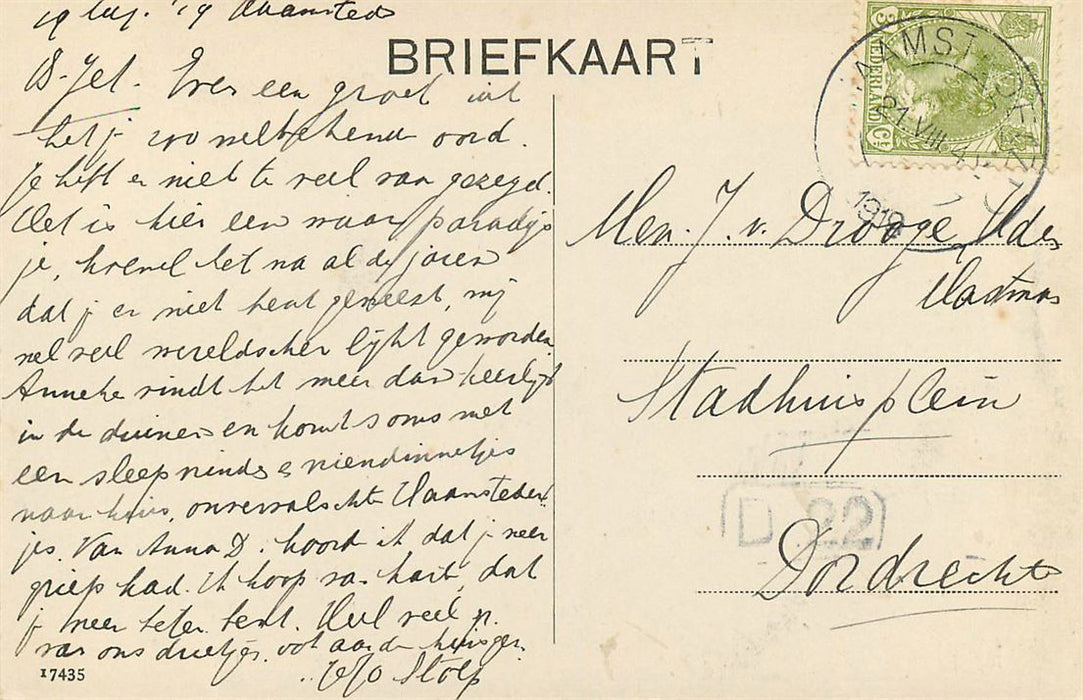 19 Aug. '19 Haamstede
BRIEFKAART
B. Jet. Even een groet uit
het j zoo welbekende oord.
Je hebt er niet te veel van gezegd.
Het is hier een waar paradijs
je, hoewel het na al de jaren
dat j er niet bent geweest, mij
wel veel wereldscher lijkt geworden.
Anneke vindt het meer dan heerlijk
in de duinen en komt soms met
een sleep vriendinnetjes
naar huis, onvervalschte Haamstedert
jes. Van Anna D. hoorde ik dat j weer
griep had. Ik hoop van harte, dat
j weer beter bent. Heel veel gr.
van ons drietjes, ook aan de huisgen.
Stolp
17435
NEDERLAND
5 Ct
HAAMSTEDE
21 VIII
1919
Mevr. J. v. Drooge
Stadhuisplein
D 22
Dordrecht